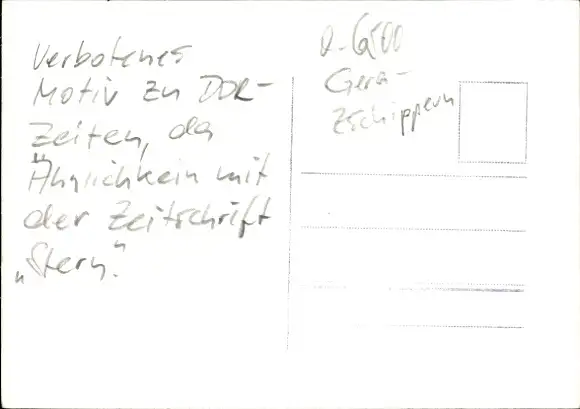 Verbotenes
Motiv zu DDR-
Zeiten, da
Ähnlichkein mit
der Zeitschrift
„Stern."
O-6500
Gera-
Zschippern